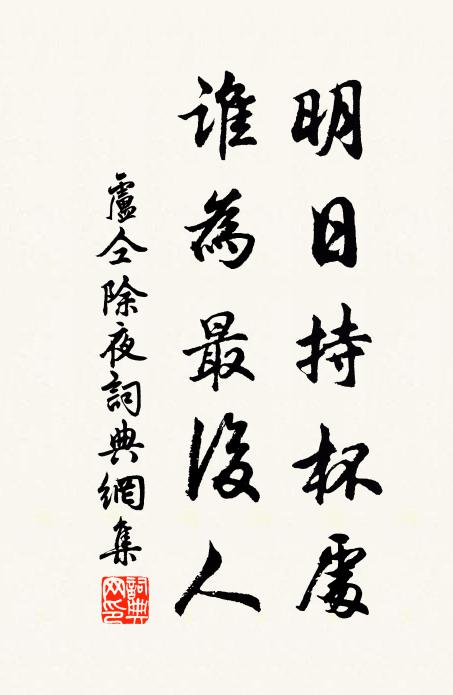 明日持杯處
誰為最後人
盧仝除夜詞典網集
詞典網印